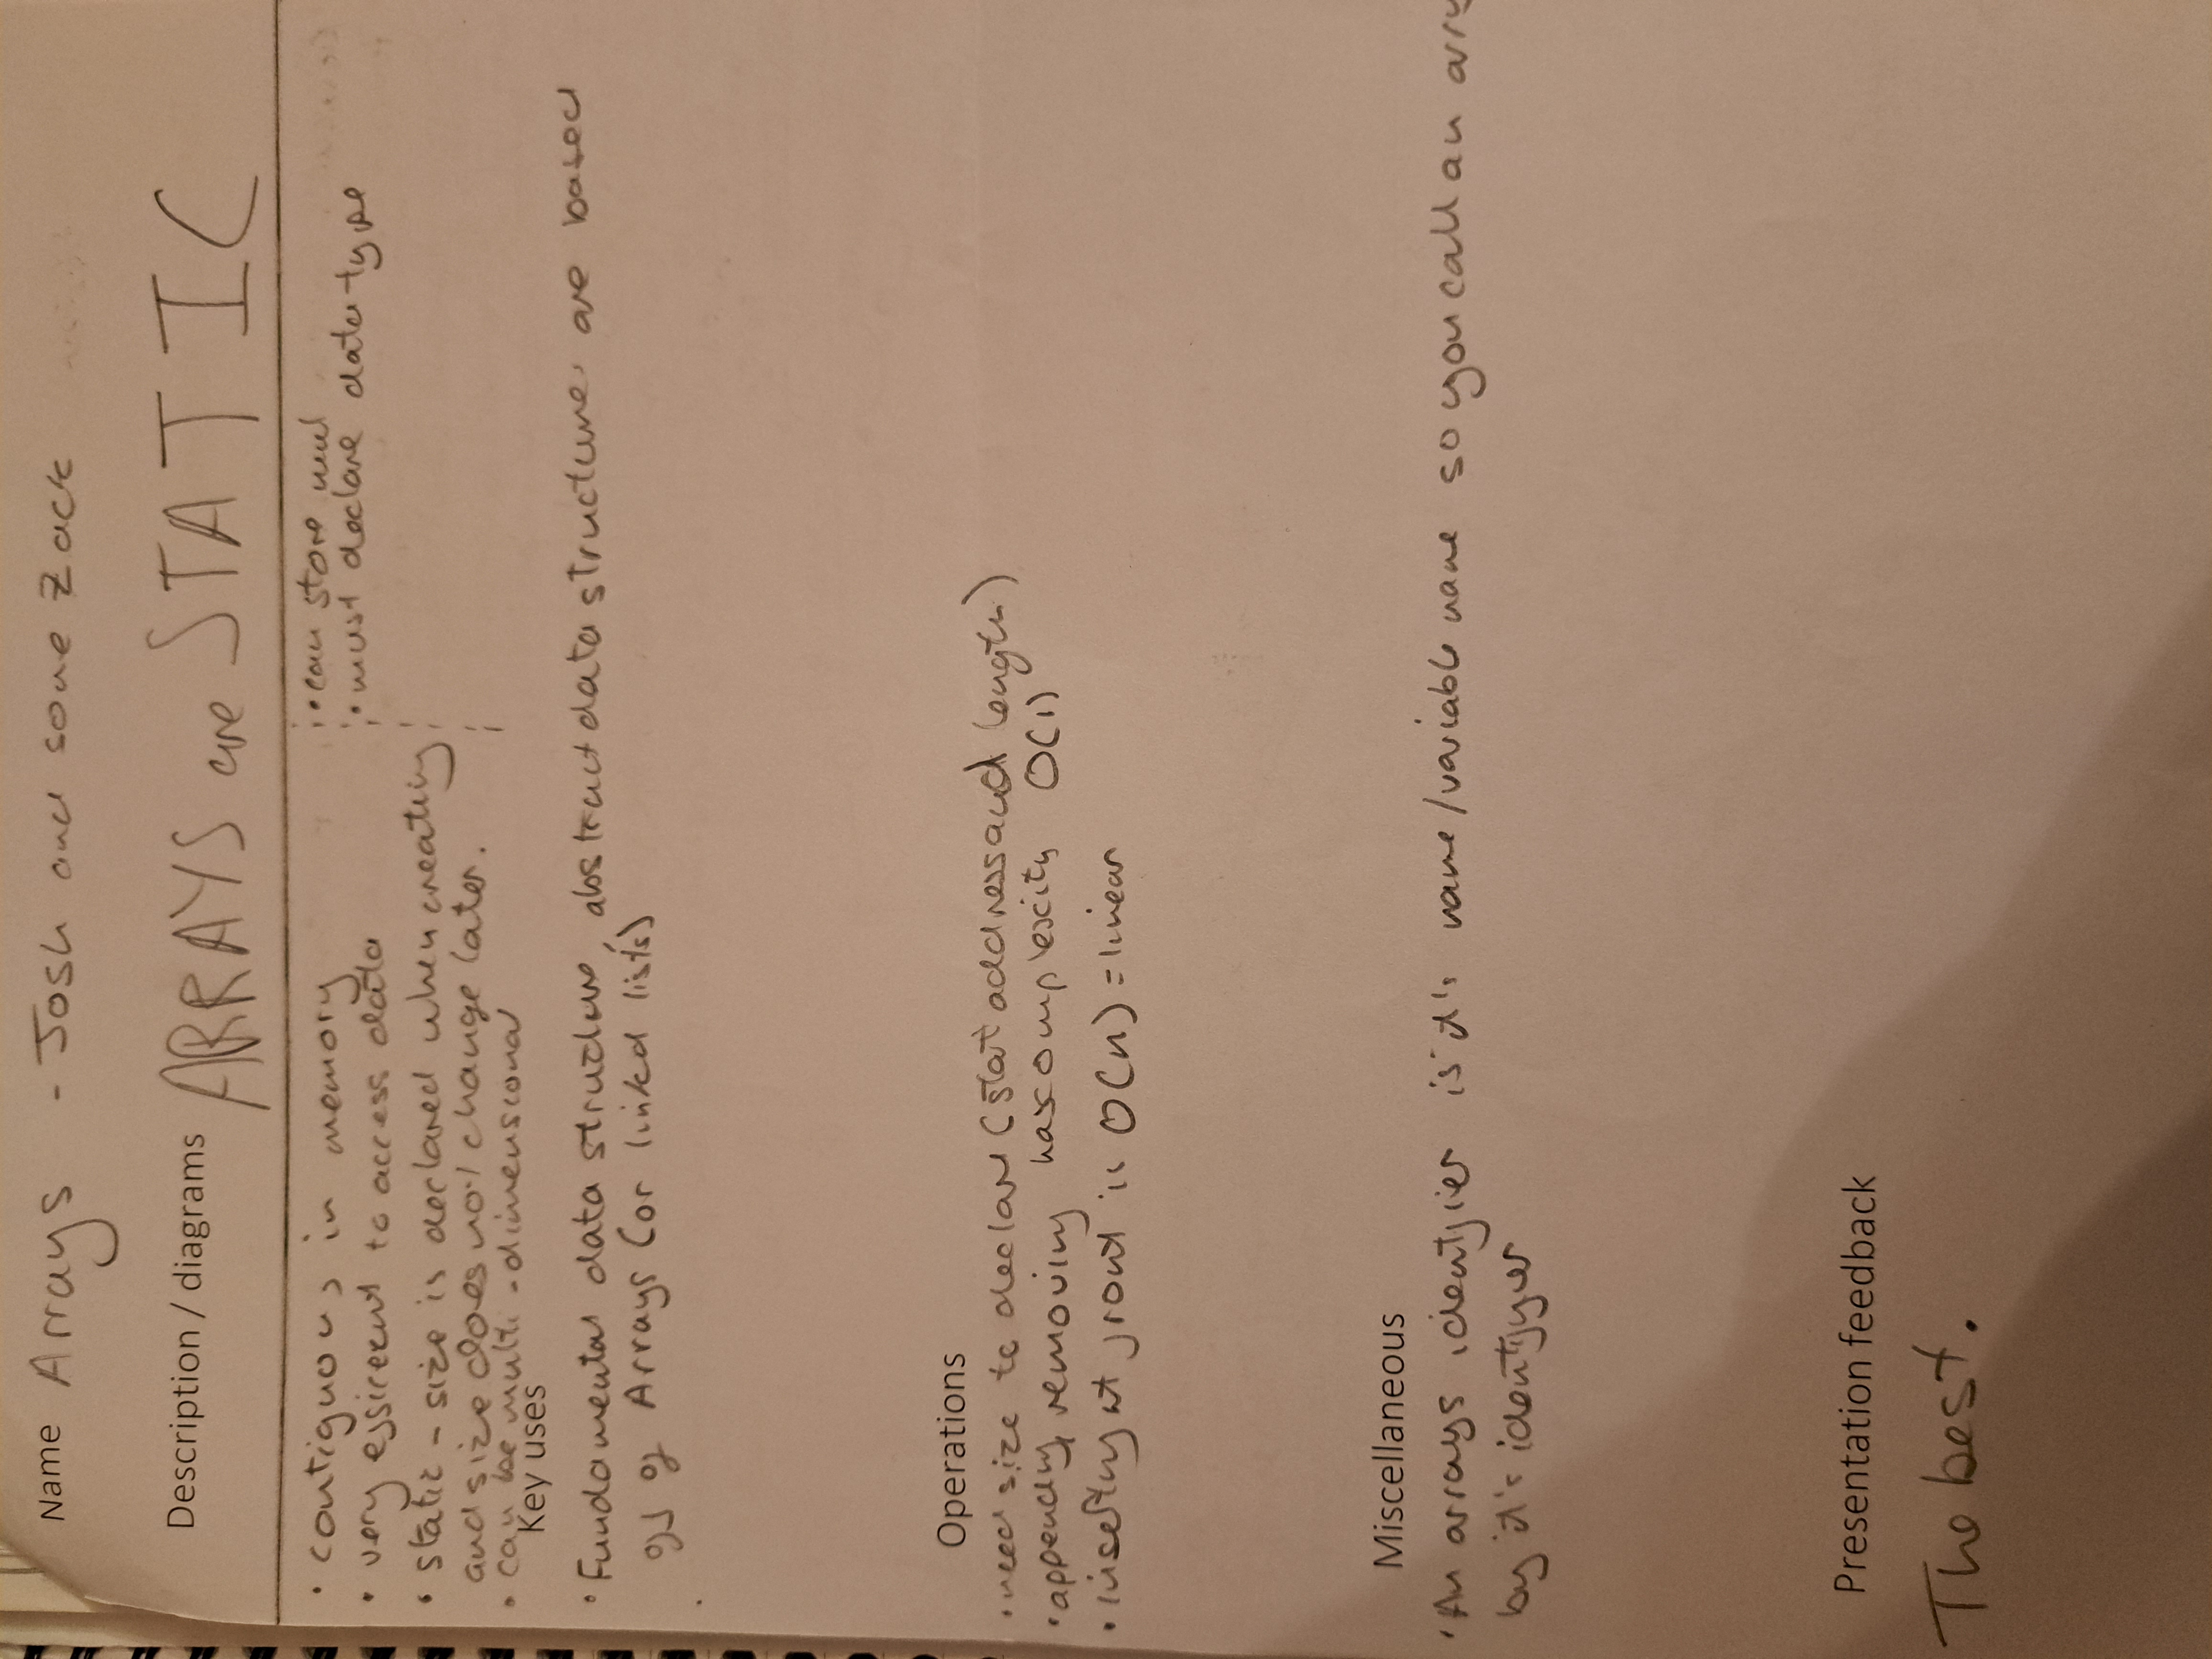 Name Arrays - Josh and some Zack
Description / diagrams ARRAYS are STATIC
• contiguous in memory
• very efficient to access data
• static - size is declared when creating
and size does not change later.
• can be multi-dimensional
• can store
• must declare data type
Key uses
• Fundamental data structure, abstract data structures are based
off of Arrays (or linked lists)
Operations
• need size to declare (stat address and length)
• appending, removing has complexity O(1)
• inserting at front is O(n) = linear
Miscellaneous
• An arrays identifier is it's name/variable name so you call an arry
by it's identifyer
Presentation feedback
The best.